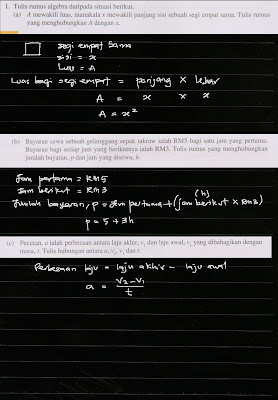 1. Tulis rumus algebra daripada situasi berikut.
(a) A mewakili luas, manakala x mewakili panjang sisi sebuah segi empat sama. Tulis rumus
yang menghubungkan A dengan x.
segi empat sama
sisi = x
Luas = A
Luas bagi segi empat = panjang × lebar
A = x × x
A = x²
(b) Bayaran sewa sebuah gelanggang sepak takraw ialah RM5 bagi satu jam yang pertama.
Bayaran bagi setiap jam yang berikutnya ialah RM3. Tulis rumus yang menghubungkan
jumlah bayaran, p dan jam yang disewa, h.
Jam pertama = RM5
Jam berikut = RM3
(h)
Jumlah bayaran, p = Jam pertama + (jam berikut × RM3)
p = 5 + 3h
(c) Pecutan, a ialah perbezaan antara laju akhir, v₂ dan laju awal, v₁ yang dibahagikan dengan
masa, t. Tulis hubungan antara a, v₂, v₁ dan t.
Perbezaan laju = laju akhir - laju awal
a = v₂ - v₁ / t